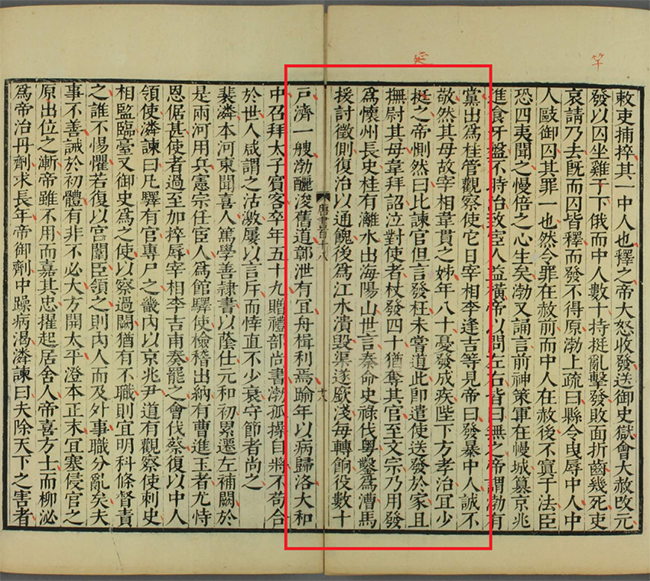 敕吏捕捽其一中人也釋之帝大怒收發送御史獄會大赦改元
發以囚坐雞干下俄而中人數十持挺亂擊發敗面折齒幾死吏
哀請乃去既而囚皆釋而發不得原渤上疏曰縣令曳辱中人中
人毆御囚其罪一也然令罪在赦前而中人在赦後不寘于法臣
恐四夷聞之慢倍之心生矣渤又誦言前神策軍在幔城篡京兆
進食牙盤不時治致宦人益橫帝以問左右皆曰無之帝謂渤有
黨出爲桂管觀察使它日宰相李逢吉等見帝曰發暴中人誠不
敬然其母故宰相韋貫之姊年八十憂發成疾陛下方孝治宜少
挺之帝惻然曰比諫官但言發枉未嘗道此卽遣使送發於家且
撫尉其母韋拜詔泣對使者杖發四十猶奪其官至文宗乃用發
爲懷州長史桂有灕水出海陽山世言秦命史祿伐粵鑿爲漕馬
援討徵側復治以通餽後爲江水潰毀渠遂廞淺每轉餉役數十
唐書百十八
十八
戶濟一艘渤釃浚舊道鄣泄有宜舟楫利焉踰年以病歸洛大和
中召拜太子賓客卒年五十九贈禮部尚書渤孤操自將不苟合
於世人咸謂之沽激屢以言斥而悻直不少衰守節者尚之
裴潾本河東聞喜人篤學善隸書以蔭仕元和初累遷左補闕於
是兩河用兵憲宗任宦人爲館驛使檢稽出納有曹進玉者尤恃
恩倨甚使者過至加捽辱宰相李吉甫奏罷之會伐蔡復以中人
領使潾諫曰凡驛有官專尸之畿內以京兆尹道有觀察使刺史
相監臨臺又御史爲之使以察過闕猶有不職則宜明科條督責
之誰不惕懼若復以宮闈臣領之則內人而及外事職分亂矣夫
事不善誡於初體有非不必大方開太平澄本正末宜塞侵官之
原出位之漸帝雖不用而嘉其忠擢起居舍人帝喜方士而柳泌
爲帝治丹劑求長年帝御劑中躁病渴潾諫曰夫除天下之害者